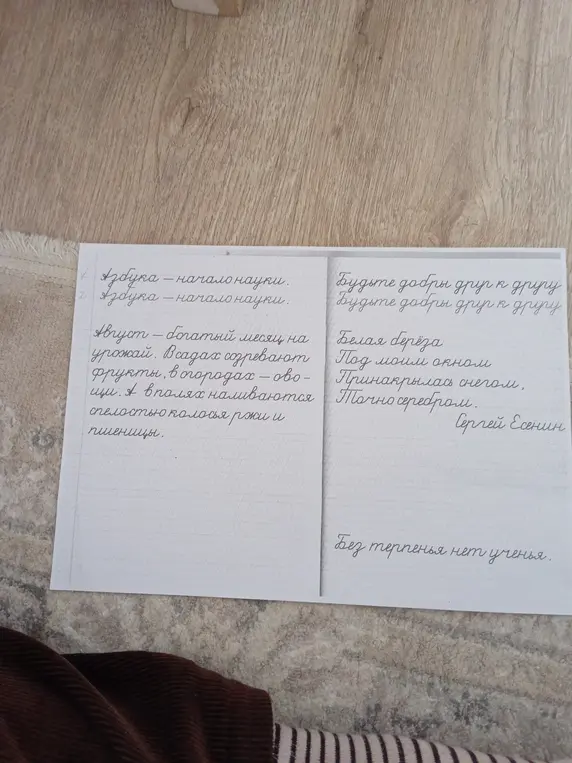 Азбука – начало науки.
Азбука – начало науки.
Август – богатый месяц на
урожай. В садах созревают
фрукты, в огородах – ово-
щи. А в полях наливаются
спелостью колосья ржи и
пшеницы.
Будьте добры друг к другу
Будьте добры друг к другу
Белая берёза
Под моим окном
Принакрылась снегом,
Точно серебром.
Сергей Есенин
Без терпенья нет ученья.